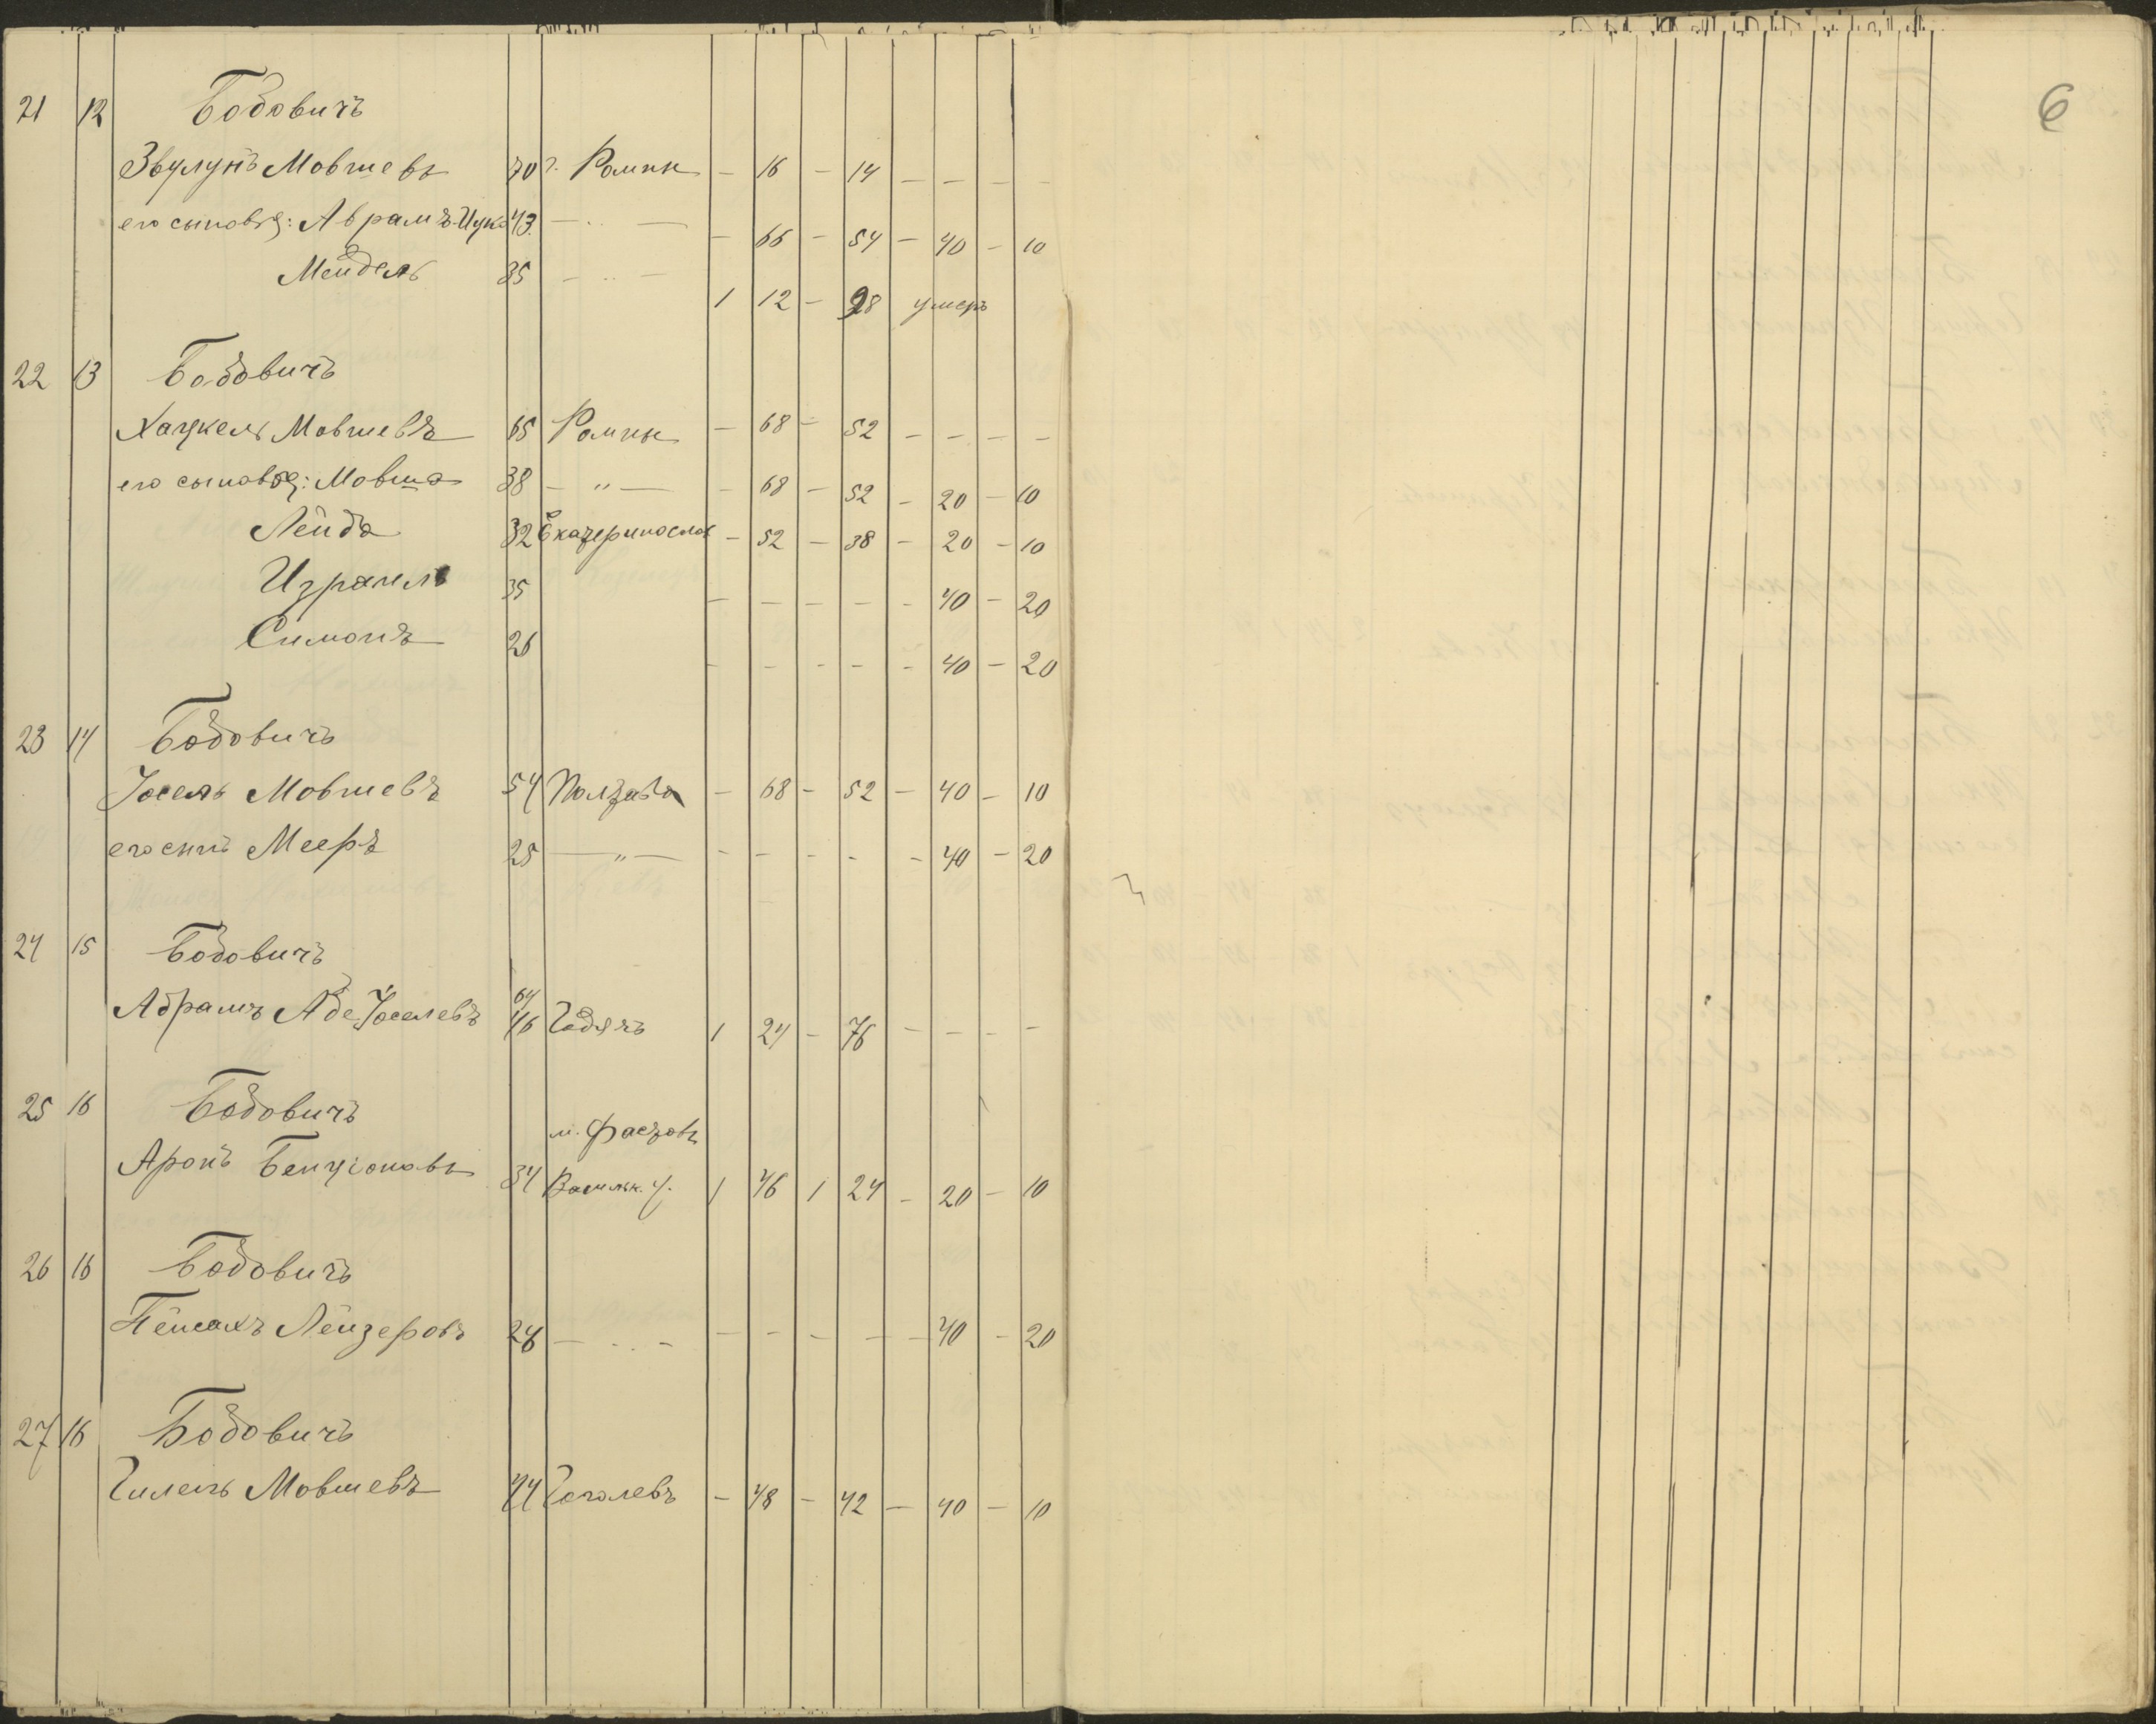 6
21 12 Бодовичъ
Звулунъ Мовшевъ 70 г. Ромны — 16 — 14 — — — —
его сыновья: Абрамъ-Ицко 43 — " — — 66 — 54 — 40 — 10
Мендель 35 — " — 1 12 — 98 умеръ
22 13 Бодовичъ
Хацкель Мовшевъ 65 Ромны — 68 — 52 — — — —
его сыновья: Мовша 38 — " — — 68 — 52 — 20 — 10
Лейба 32 Екатеринослав — 52 — 38 — 20 — 10
Израиль 35 — — — — — 40 — 20
Симонъ 26 — — — — — 40 — 20
23 14 Бодовичъ
Іосель Мовшевъ 54 Полтава — 68 — 52 — 40 — 10
его сынъ Мееръ 25 — " — — — — — — 40 — 20
24 15 Бодовичъ
64
Абрамъ Абе Іоселевъ 46 Гадячъ 1 24 — 76 — — — —
25 16 Бодовичъ
м. Фастовъ
Аронъ Бенціоновъ 34 Васильк. у. 1 46 1 24 — 20 — 10
26 16 Бодовичъ
Пейсахъ Лейзеровъ 28 — " — — — — — — 40 — 20
27 16 Бодовичъ
Гилель Мовшевъ 44 Гоголевъ — 48 — 42 — 40 — 10